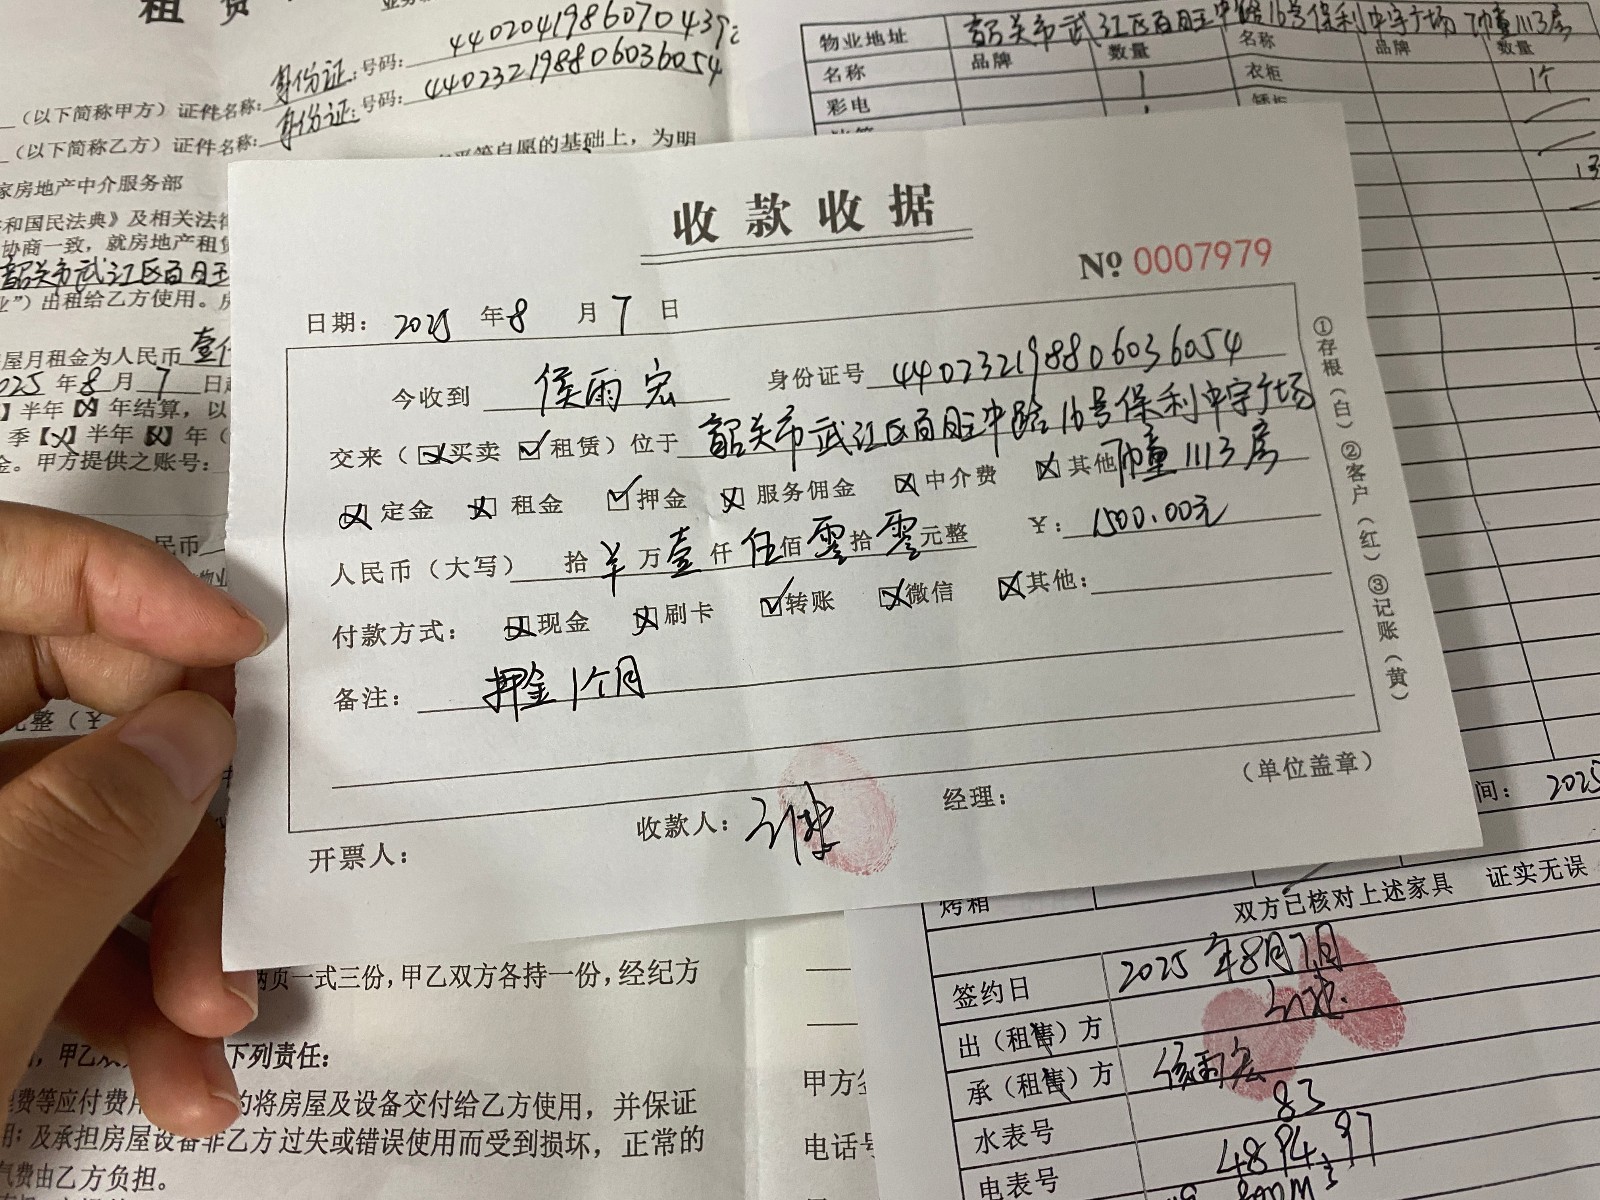 租 赁
号码：44020419860704392
（以下简称甲方）证件名称：身份证
号码：440232198806036054
（以下简称乙方）证件名称：身份证
平等自愿的基础上，为明
家房地产中介服务部
和国民法典》及相关法律
协商一致，就房地产租赁
韶关市武江区百旺
业”）出租给乙方使用。房
屋月租金为人民币 壹仟
2025 年 8 月 7 日起
】半年【X】年结算，以
季【X】半年【X】年（
金。甲方提供之账号：
民币
物业地址 韶关市武江区百旺中路16号保利中宇广场 1幢1113房
名称 品牌 数量 名称 品牌 数量
彩电 1 衣柜 1个
收款收据
№ 0007979
日期： 2025 年 8 月 7 日
今收到 侯雨宏 身份证号 440232198806036054
交来（☒买卖 ☑租赁）位于 韶关市武江区百旺中路16号保利中宇广场
☒定金 ☒租金 ☑押金 ☒服务佣金 ☒中介费 ☒其他 1幢1113房
人民币（大写） 拾 羊 万 壹 仟 伍 佰 零 拾 零 元整 ￥： 1500.00元
付款方式： ☒现金 ☒刷卡 ☑转账 ☒微信 ☒其他：
备注： 押金1个月
（单位盖章）
开票人： 收款人： 经理：
①存根（白）②客户（红）③记账（黄）
整（￥
间： 2025
烤箱
双方已核对上述家具 证实无误
签约日 2025年8月7日
出（租售）方
承（租售）方 侯雨宏
水表号 83
电表号 4894.97
两页一式三份，甲乙双方各持一份，经纪方
下列责任：
费等应付费用
的将房屋及设备交付给乙方使用，并保证
用；及承担房屋设备非乙方过失或错误使用而受到损坏，正常的
气费由乙方负担。
甲方签
电话号